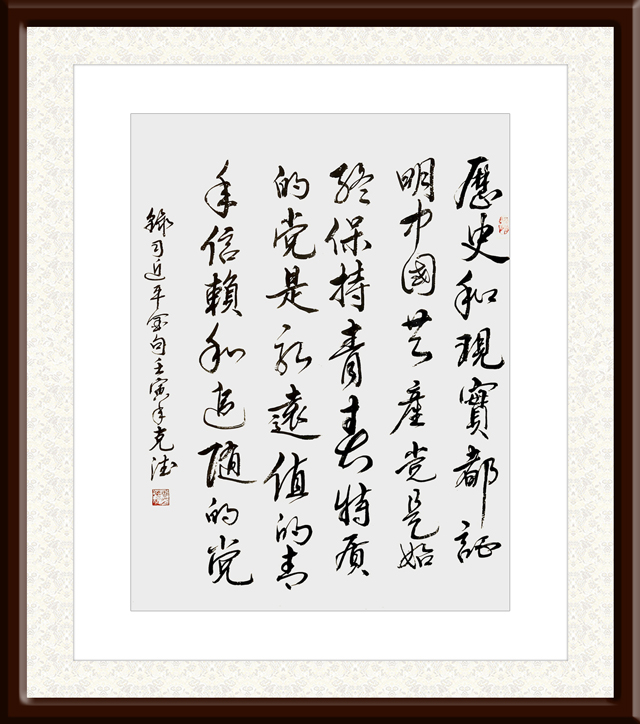 歷史和現實都証
明中國共産党是始
終保持青春特质
的党是永遠值的青
年信賴和追随的党
録习近平金句壬寅年克